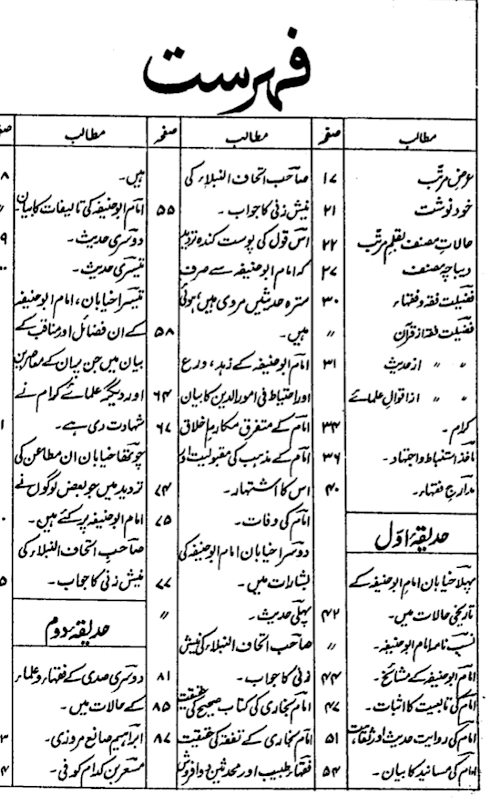 فہرست
مطالب صفحہ
عرض مرتب ۱۷
خود نوشت ۲۱
حالات مصنف بقلم مرتب ۲۲
دیباچہ مصنف ۲۷
فضیلت فقہ و فقہاء ۳۰
فضیلت فقہ از قرآن 〃
〃 〃 از حدیث ۳۱
〃 〃 از اقوال علمائے
کرام۔ ۳۴
ماخذ استنباط و اجتہاد۔ ۳۶
مدارج فقہاء۔ ۴۰
حدیقۂ اوّل
پہلا خیابان امام ابوحنیفہ کے
تاریخی حالات میں۔ ۴۲
نسب نامہ امام ابوحنیفہ۔ 〃
امام ابوحنیفہ کے مشائخ۔ ۴۴
امام کی تابعیت کا اثبات۔ ۴۷
امام کی روایت حدیث اور ۵۱
امام کی مسانید کا بیان۔ ۵۴
مطالب صفحہ
صاحب اتحاف النبلاء کی
نیش زنی کا جواب۔ ۵۵
اس قول کی پوست کندہ تردید
کہ امام ابوحنیفہ سے صرف
سترہ حدیثیں مروی ہیں/ہوئی
ہیں۔ ۵۸
امام ابوحنیفہ کے زہد، ورع
اور احتیاط فی امور الدین کا بیان ۶۴
امام کے متفرق مکارم اخلاق ۶۷
امام کے مذہب کی مقبولیت اور
اس کا اشتہار۔ ۷۴
امام کی وفات۔ ۷۵
دوسرا خیابان امام ابوحنیفہ کی
بشارات میں۔ ۷۷
پہلی حدیث۔ 〃
صاحب اتحاف النبلاء کی نیش
زنی کا جواب۔ ۸۱
امام بخاری کی کتاب صحیح کی حقیقت ۸۵
امام بخاری کے تفقہ کی حقیقت ۸۷
فقہاء طبیب اور محدثین دوا فروش
مطالب
ہیں۔
امام ابوحنیفہ کی تالیفات کا بیان۔
دوسری حدیث۔
تیسری حدیث۔
تیسرا خیابان، امام ابوحنیفہ
کے ان فضائل اور مناقب کے
بیان میں جن پر ان کے معاصرین
اور دیگر علمائے کرام نے
شہادت دی ہے۔
چوتھا خیابان ان مطاعن کی
تردید میں جو بعض لوگوں نے
امام ابوحنیفہ پر کئے ہیں۔
صاحب اتحاف النبلاء کی
نیش زنی کا جواب۔
حدیقۂ دوم
دوسری صدی کے فقہاء و علماء
کے حالات میں۔
ابراہیم صائغ مروزی۔
مسعر بن کدام کوفی۔